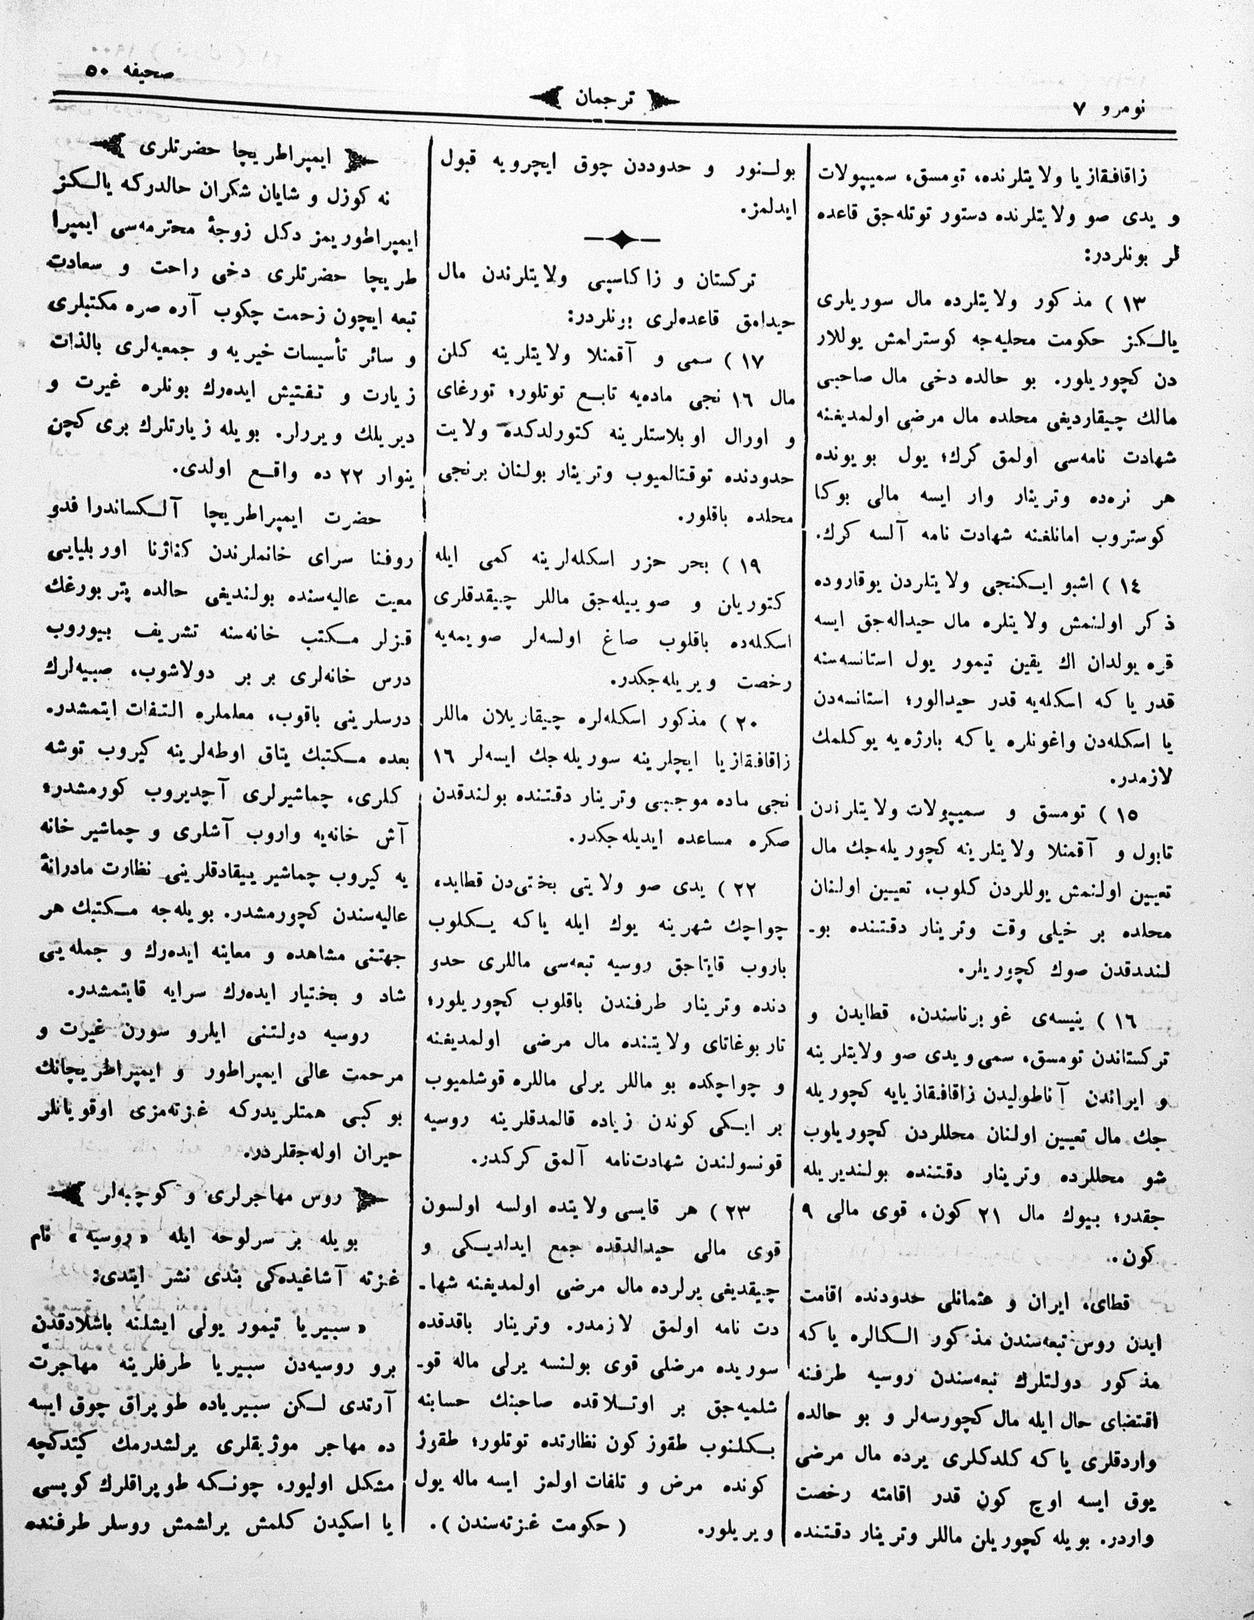 نومرو ٧
ترجمان
صحيفه ٥٠
زاقافقازيا ولايتلرنده، تومسق، سميپولات
و يدى صو ولايتلرنده دستور توتله‌جق قاعده
لر بونلردر:
١٣ ) مذكور ولايتلرده مال سوريلرى
يالـكز حكومت محليه‌جه كوسترلمش يوللار
دن كچوريلور. بو حالده دخى مال صاحبى
مالك چيقارديغى محلده مال مرضى اولمديغنه
شهادت نامه‌سى اولمق كرك؛ يول بويونده
هر نره‌ده وترينار وار ايسه مالى بوكا
كوستروب امانلغنه شهادت نامه آلسه كرك.
١٤ ) اشبو ايـكنجى ولايتلردن يوقاروده
ذكر اولنمش ولايتلره مال حيداله‌جق ايسه
قره يولدان اك يقين تيمور يول استانسه‌سنه
قدر يا كه اسكله‌يه قدر حيدالور؛ استانسه‌دن
يا اسكله‌دن واغونلره ياكه بارژه‌يه يوكلمك
لازمدر.
١٥ ) تومسق و سميپولات ولايتلرندن
تابول و آقمنلا ولايتلرينه كچوريله‌جك مال
تعيين اولنمش يوللردن كلوب، تعيين اولنان
محلده بر خيلى وقت وترينار دقتنده بو-
لندقدن صوك كچوريلر.
١٦ ) ينيسه‌ى غوبرناسندن، قطايدن و
تركستاندن تومسق، سمى و يدى صو ولايتلرينه
و ايراندن آناطوليدن زاقافقازيايه كچوريله
جك مال تعيين اولنان محللردن كچوريلوب
شو محللرده وترينار دقتنده بولنديريله
جقدر؛ بيوك مال ٢١ كون، قوى مالى ٩
كون.
قطاى، ايران و عثمانلى حدودنده اقامت
ايدن روس تبعه‌سندن مذكور الـكالره ياكه
مذكور دولتلرك تبعه‌سندن روسيه طرفنه
اقتضاى حال ايله مال كچورسه‌لر و بو حالده
واردقلرى ياكه كلدكلرى يرده مال مرضى
يوق ايسه اوچ كون قدر اقامته رخصت
واردر. بويله كچوريلن ماللر وترينار دقتنده
بولـنور و حدوددن چوق ايچرويه قبول
ايدلمز.
تركستان و زاكاسپى ولايتلرندن مال
حيدامق قاعده‌لرى بونلردر:
١٧ ) سمى و آقمنلا ولايتلرينه كلن
مال ١٦ نجى ماده‌يه تابـع توتلور؛ تورغاى
و اورال اوبلاستلرينه كتورلدكده ولايت
حدودنده توقتالميوب وترينار بولنان برنجى
محلده باقلور.
١٩ ) بحر حزر اسكله‌لرينه كمى ايله
كتوريلن و صوييله‌جق ماللر چيقدقلرى
اسكله‌ده باقلوب صاغ اولسه‌لر صويمه‌يه
رخصت ويريله‌جكدر.
٢٠ ) مذكور اسكله‌لره چيقاريلان ماللر
زاقافقازيا ايچلرينه سوريله‌جك ايسه‌لر ١٦
نجى ماده موجبى وترينار دقتنده بولندقدن
صكره مساعده ايديله‌جكدر.
٢٢ ) يدى صو ولايتى بختى‌دن قطايده،
چواچك شهرينه يوك ايله ياكه يـكلوب
باروب قايتاجق روسيه تبعه‌سى ماللرى حدو
دنده وترينار طرفندن باقلوب كچوريلور؛
تاربوغاتاى ولايتنده مال مرضى اولمديغنه
و چواچكده بو ماللر يرلى ماللره قوشلميوب
بر ايـكى كوندن زياده قالمدقلرينه روسيه
قونسولندن شهادت‌نامه آلمق كركدر.
٢٣ ) هر قايسى ولايتده اولسه اولسون
قوى مالى حيدالدقده جمع ايدلديـكى و
چيقديغى يرلرده مال مرضى اولمديغنه شها-
دت نامه اولمق لازمدر. وترينار باقدقده
سوريده مرضلى قوى بولنسه يرلى ماله قو-
شلميه‌جق بر اوتـلاقده صاحبنك حسابنه
بـكلنوب طقوز كون نظارتده توتلور؛ طقوز
كونده مرض و تلفات اولمز ايسه ماله يول
ويريلور. ( حكومت غزته‌سندن ).
ايمپراطريچا حضرتلرى
نه كوزل و شايان شكران حالدركه يالـكز
ايمپراطوريمز دكل زوجهٔ محترمه‌سى ايمپرا
طريچا حضرتلرى دخى راحت و سعادت
تبعه ايچون زحمت چكوب آره صره مكتبلرى
و سائر تأسيسات خيريه و جمعيه‌لرى بالذات
زيارت و تفتيش ايده‌رك بونلره غيرت و
ديريلك ويررلر. بويله زيارتلرك برى كچن
ينوار ٢٢ ده واقـع اولدى.
حضرت ايمپراطريچا آلـكساندرا فدو
روفنا سراى خانملرندن كناژنا اوربليايى
معيت عاليه‌سنده بولنديغى حالده پتربورغك
قزلر مـكتب خانه‌سنه تشريف بيوروب
درس خانه‌لرى بر بر دولاشوب، صبيه‌لرك
درسلرينى باقوب، معلملره التفات ايتمشدر.
بعده مـكتبك يتاق اوطه‌لرينه كيروب توشه
كلرى، چماشيرلرى آچديروب كورمشدر؛
آش خانه‌يه واروب آشلرى و چماشير خانه
يه كيروب چماشير ييقادقلرينى نظارت مادرانهٔ
عاليه‌سندن كچورمشدر. بويله‌جه مـكتبك هر
جهتنى مشاهده و معاينه ايده‌رك و جمله‌يى
شاد و بختيار ايده‌رك سرايه قايتمشدر.
روسيه دولتنى ايلرو سورن غيرت و
مرحمت عالى ايمپراطور و ايمپراطريچانك
بو كبى همتلريدركه غزته‌مزى اوقويانلر
حيران اوله‌جقلردر.
روس مهاجرلرى و كوچبه‌لر
بويله بر سرلوحه ايله «روسيه» نام
غزته آشاغيده‌كى بندى نشر ايتدى:
«سبيريا تيمور يولى ايشلنه باشلادقدن
برو روسيه‌دن سبيريا طرفلرينه مهاجرت
آرتدى لـكن سبيرياده طوپراق چوق ايسه
ده مهاجر موژيقلرى يرلشدرمك كيتدكچه
مشكل اوليور، چونـكه طوپراقلرك كوپسى
يا اسكيدن كلمش يرلشمش روسلر طرفنده